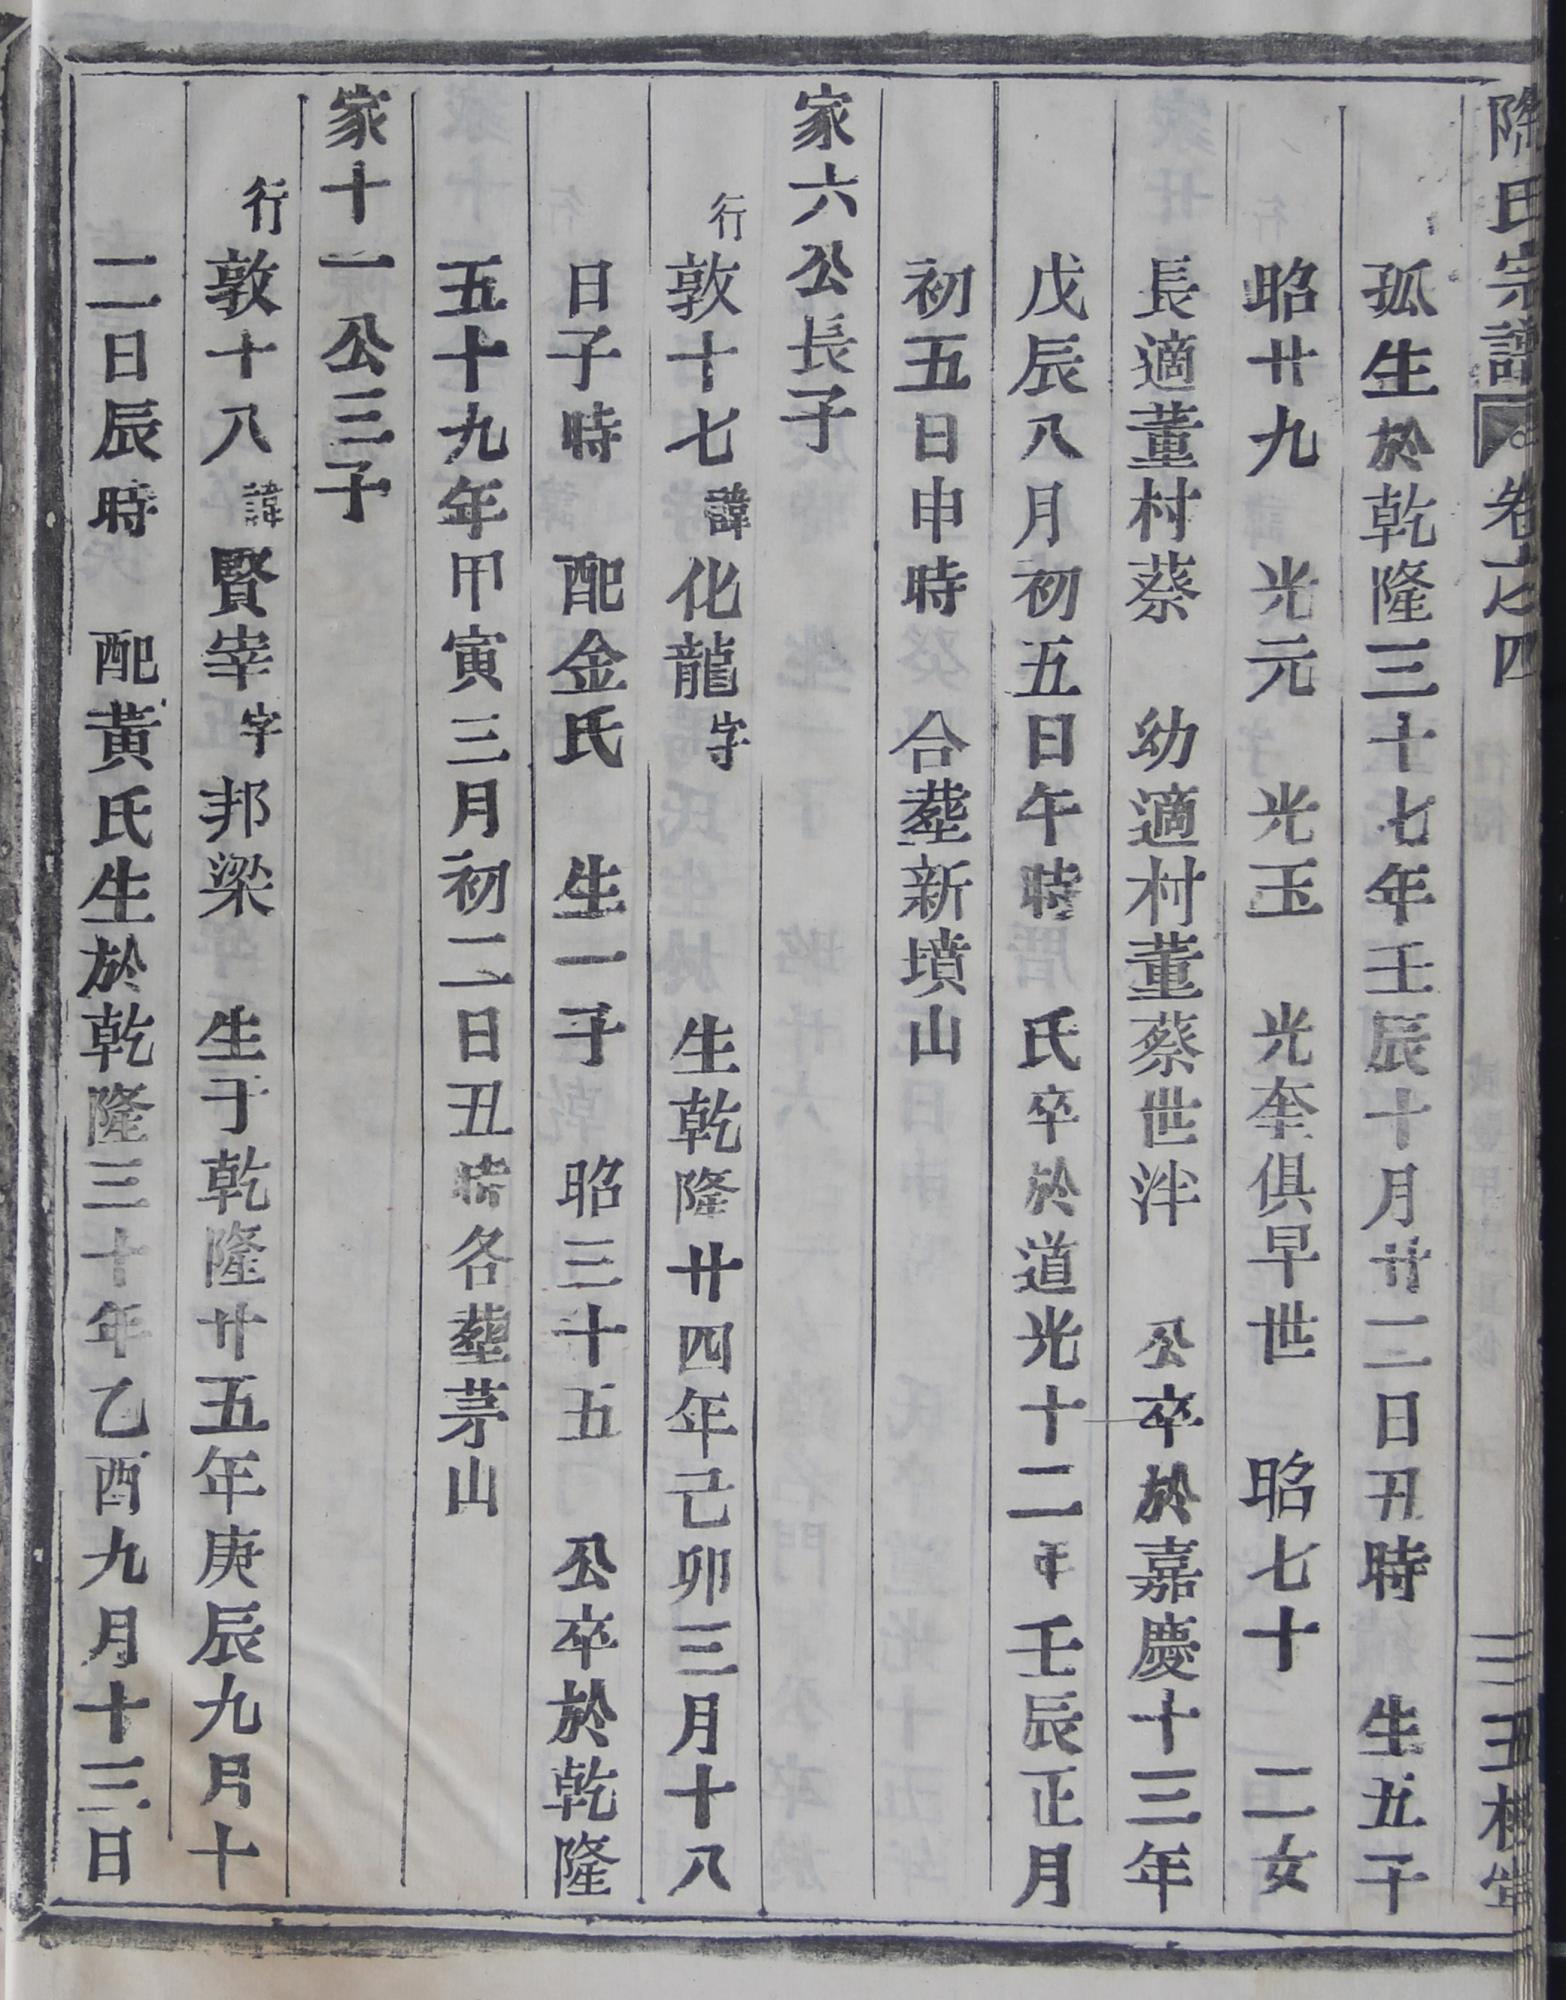 氏宗譜 卷之四
孤生於乾隆三十七年壬辰十月廿二日丑時 生五子
昭廿九 光元 光玉 光奎俱早世 昭七十 二女
長適董村蔡 幼適村董蔡世泮 公卒於嘉慶十三年
戊辰八月初五日午時 氏卒於道光十二年壬辰正月
初五日申時 合塟新墳山
家六公長子
行敦十七諱化龍字 生乾隆廿四年己卯三月十八
日子時 配金氏 生一子 昭三十五 公卒於乾隆
五十九年甲寅三月初二日丑時各塟茅山
家十一公三子
行敦十八諱賢宰字邦梁 生于乾隆廿五年庚辰九月十
二日辰時 配黃氏生於乾隆三十年乙酉九月十三日